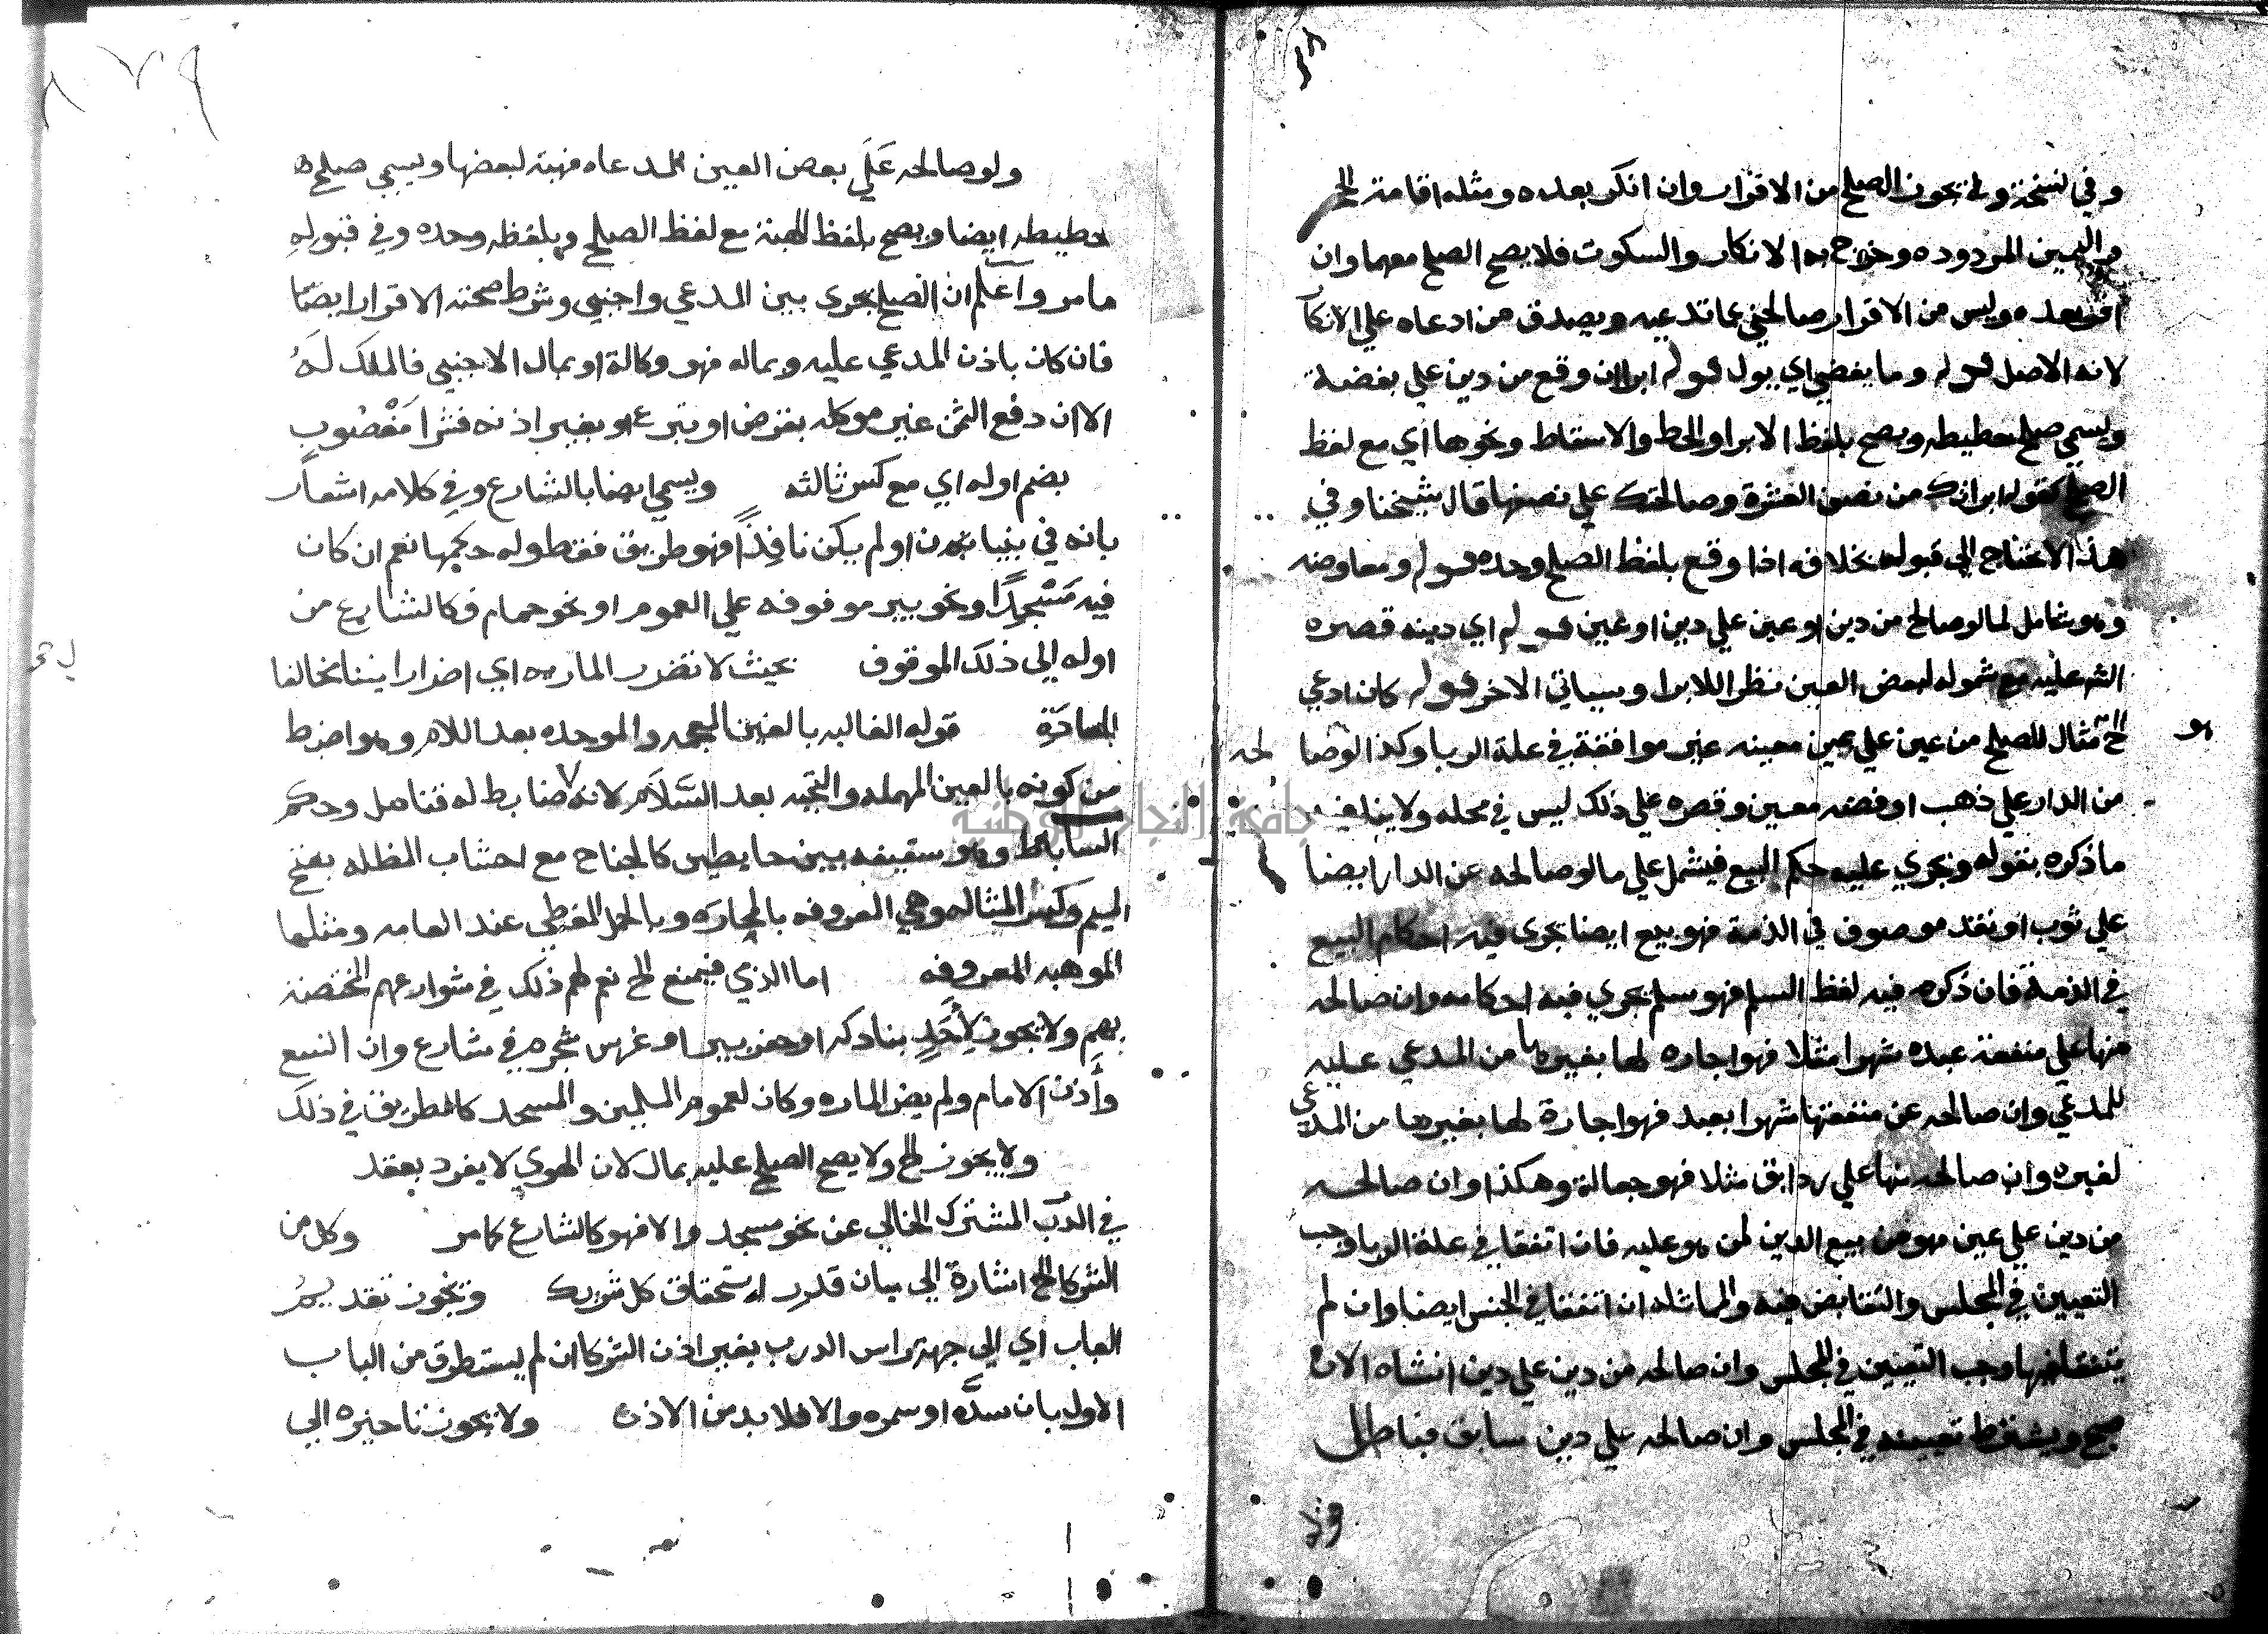 وفي نسخة ولي يجوز الصلح من الاقرار وان انكر بعده ومثله اقامة الح
واليمين المردوده وخرج به الانكار والسكوت فلا يصح الصلح معهما وان
اقر بعده وليس من الاقرار صالحني عما تدعيه ويصدق من ادعاه علي الانكا
لانه الاصل قوله وما يفضي اي يول قوله ابرا ان وقع من دين علي بعضه
ويسمي صلح حطيطه ويصح بلفظ الابرا والحط والاسقاط ونحوها اي مع لفظ
الصلح كقوله ابراتك من نصف العشرة وصالحتك علي نصفها قال شيخنا وفي
هذا الاحتاج الي قبوله بخلافه اذا وقع بلفظ الصلح وحده قوله ومعاوضه
وهو شامل لما لو صالح من دين او عين علي دين او عين قوله اي دينه قصره
الش عليه مع شموله لبعض العين نظرا للابرا وسياتي الاخر قوله كان ادعي
الخ مثال للصلح من عين علي عين معينه غير موافقة في علة الربا وكذا لو صا لحه
هو
من الدار علي ذهب او فضه معين وقصره علي ذلك ليس في محله ولا ينافيه
ما ذكره بقوله ويجري عليه حكم البيع فيشمل علي ما لو صالحه عن الدار ايضا
علي ثوب او نقد موصوف في الذمة فهو بيع ايضا يجري فيه احكام البيع
في الذمة فان ذكره فيه لفظ السلم فهو سلم يجري فيه احكامه وان صالحه
منها علي منفعة عبده شهرا مثلا فهو اجاره لها بغيرها من المدعي عليه
للمدعي وان صالحه عن منفعتها شهرا بعبد فهو اجارة لها بغيرها من المدعي
لغيره وان صالحه منها علي رد ابق مثلا فهو جعالة وهكذا وان صالحه
من دين علي عين فهو من بيع الدين لمن هو عليه فان اتفقا في علة الربا وجب
التعيين في المجلس والتقابض فيه والمماثله ان اتفقا في الجنس ايضا وان لم
يتفقا فيها وجب التعيين في المجلس وان صالحه من دين علي دين انشاه الان
صح ويشترط تعيينه في المجلس وان صالحه علي دين سابق فباطل
ولو صالحه عَلَي بعض العين المدعاه فهبة لبعضها ويسمي صلح
حطيطه ايضا ويصح بلفظ الهبة مع لفظ الصلح وبلفظه وحده وفي قبوله
ما مر واعلم ان الصلح يجري بين المدعي واجنبي وشرط صحته الاقرار ايضًا
فان كان باذن المدعي عليه وبماله فهو وكالة او بمال الاجنبي فالملك لَهُ
الا ان دفع الثمن عن موكله بقرض او تبرع او بغير اذنه فشرا مَغْصُوب
بضم اوله اي مع كسر ثالثه ويسمي ايضا بالشارع وفي كلامه اشعار
بانه في بنيان او لم يكن نافِذًا فهو طريق فقط وله حكمها نعم ان كان
فيه مَسْجِدًا ونحو بير موقوفه علي العموم او نحو حمام فكالشارع من
اوله الي ذلك الموقوف بحيث لا تضرب الماره اي اضرارا بينا مخالفا
للعادَة قوله الغالبه بالغين المعجمه والموحده بعد اللام وهو اضبط
من كونه بالعين المهمله والتحتيه بعد السَّلاَم لانه لا ضابط له فتامل وحكم
الساباط وهو سقيفه بين حايطين كالجناح مع اخشاب المظله بفتح
الميم وكسر المثاله وهي المعروفه بالمجاره وبالحمل المغطي عند العامه ومثلها
الموهبه المعروفه اما الذمي فيمنع الخ نعم لهم ذلك في شوارعهم المختصة
بهم ولا يجوز لِأَحَدٍ بنا دكه او حفر بير او غرس شجره في شارع وان اتسع
وأَذن الامام ولم يضر الماره وكان لعموم المسلمين والمسجد كالطريق في ذلك
ولا يجوز الخ ولا يصح الصلح عليه بمال لان الهوي لا يفرد بعقد
في الدرب المشترك الخالي عن نحو مسجد والا فهو كالشارع كما مر وكل من
الشركا الخ اشارة الي بيان قدر استحقاق كل شريك ويجوز تقديم
الباب اي الي جهة راس الدرب بغير اذن الشركا ان لم يستطرق من الباب
الاول بان سدَّه او سمره والا فلا بد من الاذن ولا يجوز تاخيره الي
جامعة النجاح الوطنية